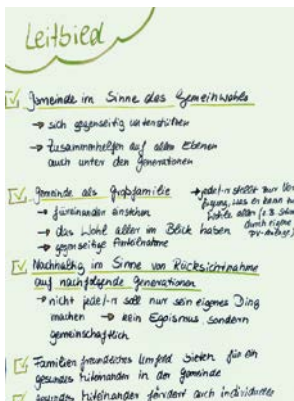 Leitbild
Gemeinde im Sinne des Gemeinwohls
→ sich gegenseitig unterstützen
→ Zusammenhelfen auf allen Ebenen
auch unter den Generationen
Gemeinde als Großfamilie
→ füreinander einstehen
→ das Wohl aller im Blick haben
→ gegenseitige Anteilnahme
→ jede/-r stellt zur Ver-
fügung, was er kann zum
Wohle aller (z.B. Strom
durch eigene
PV-Anlage)
Nachhaltig im Sinne von Rücksichtnahme
auf nachfolgende Generationen
→ nicht jede/-r soll nur sein eigenes Ding
machen → kein Egoismus sondern
gemeinschaftlich
Familienfreundliches Umfeld bieten für ein
gesundes Miteinander in der Gemeinde
gesundes Miteinander fördert auch